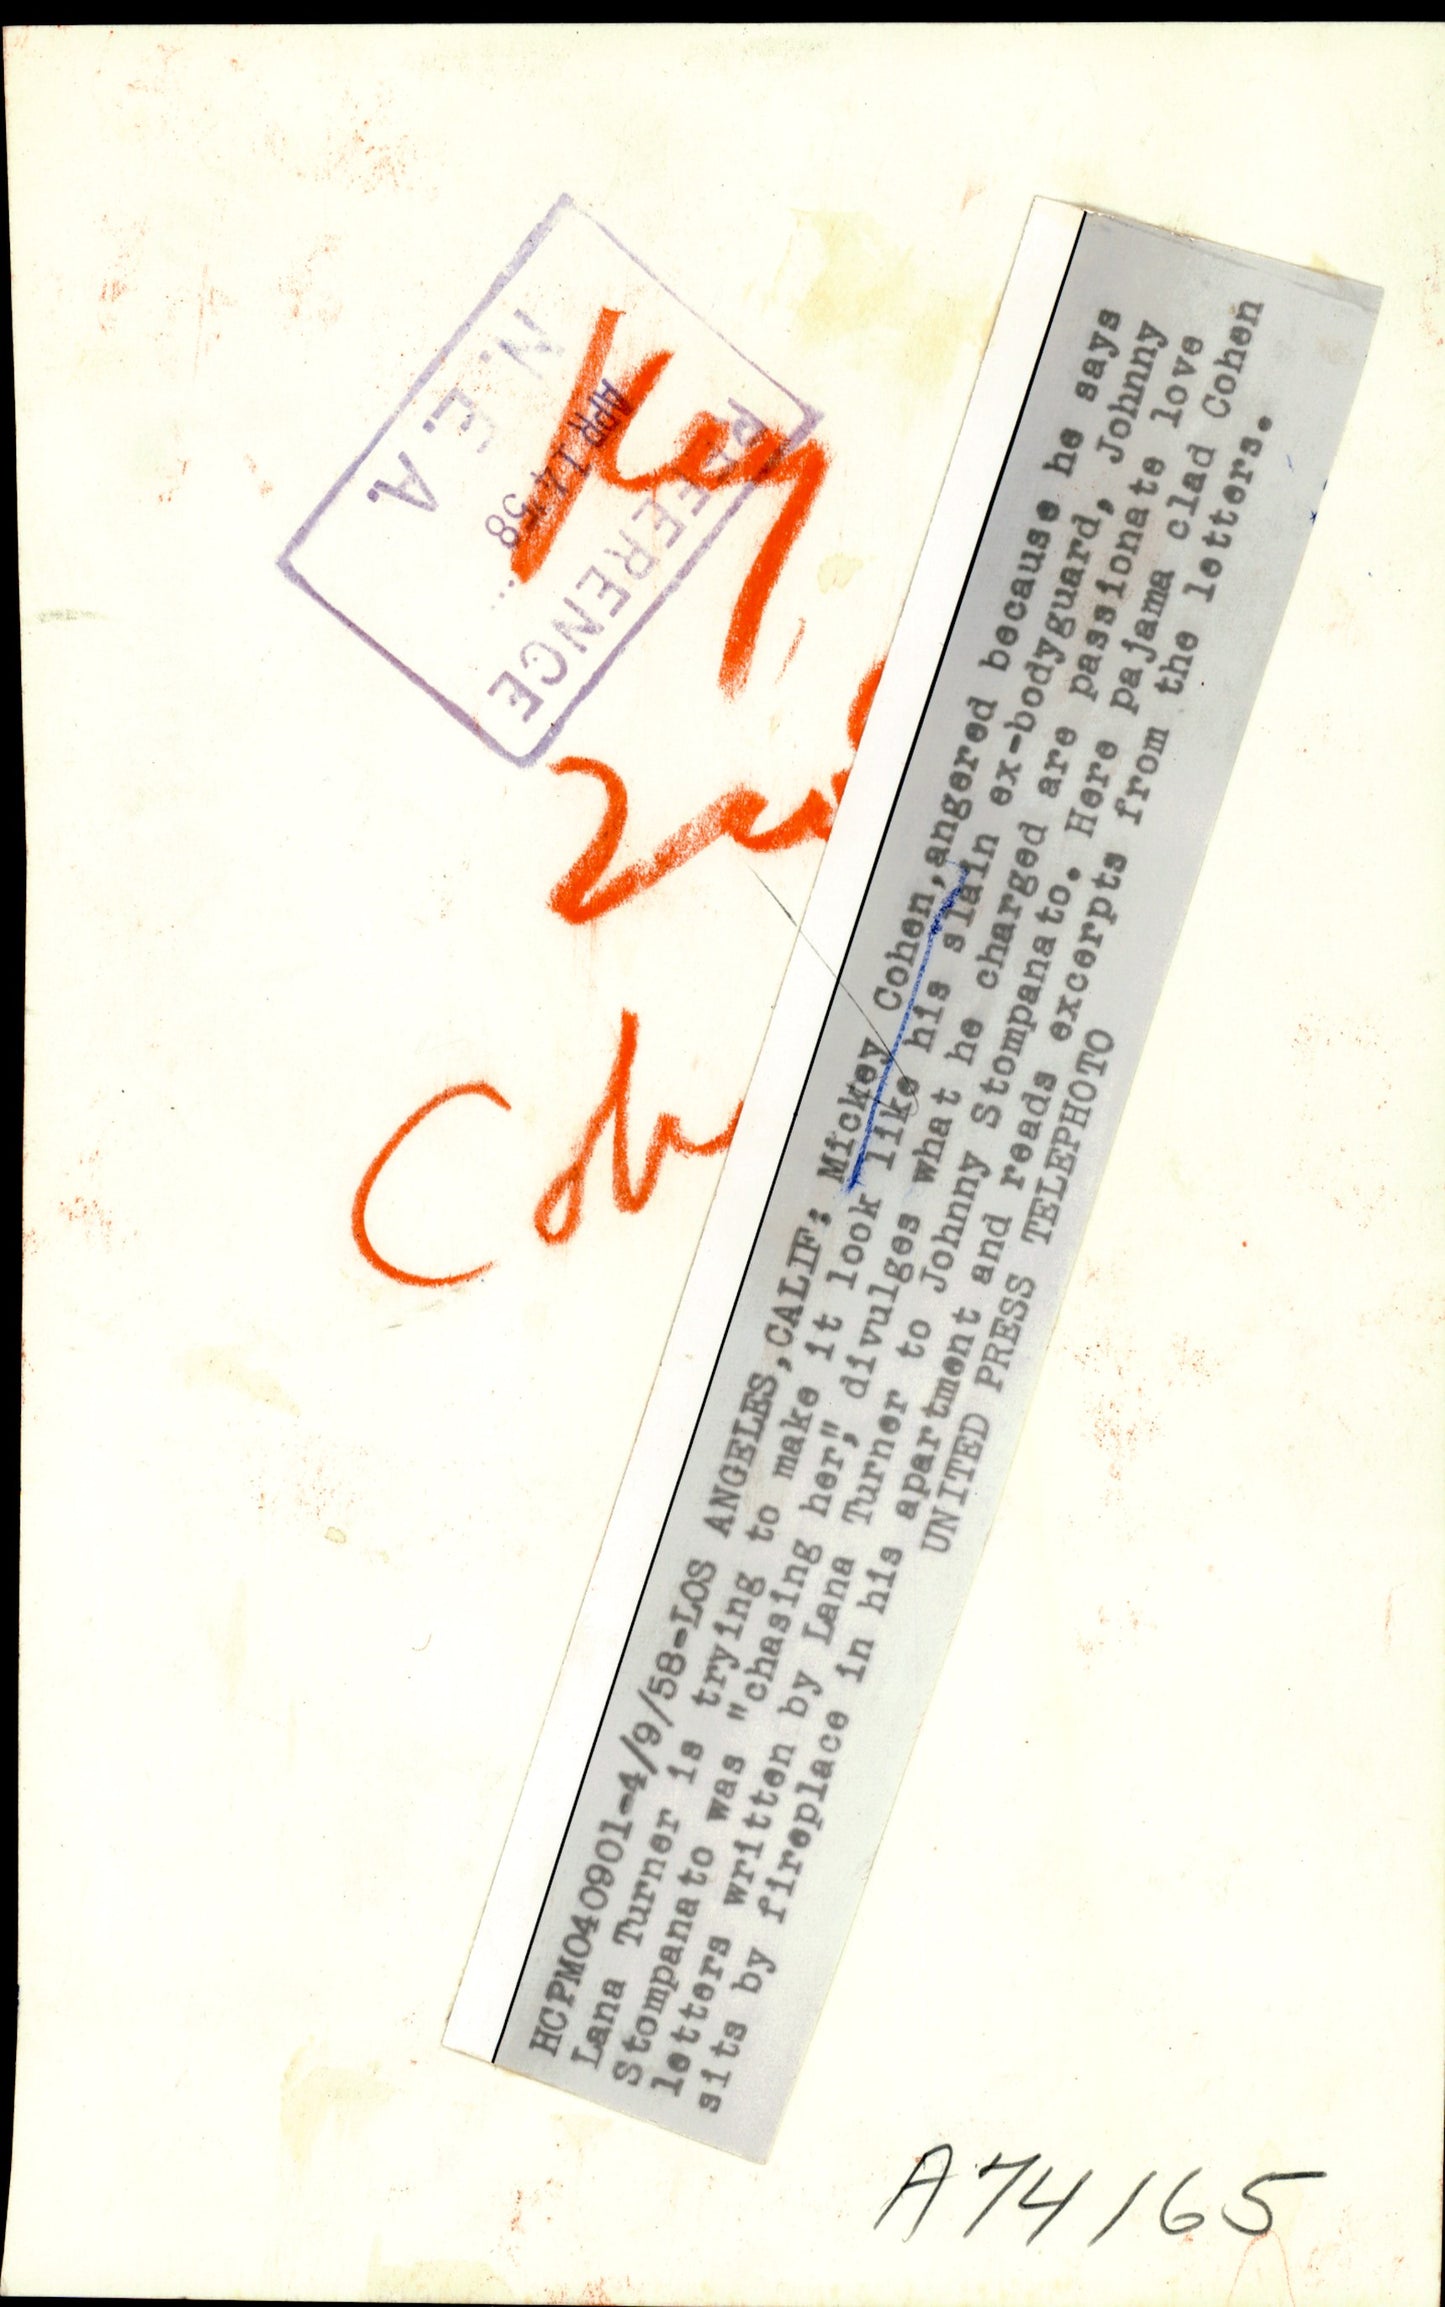 N.E.A.
APR 14 '58
REFERENCE
Key
Coh
HCPM040901-4/9/58-LOS ANGELES,CALIF: Mickey Cohen,angered because he says
Lana Turner is trying to make it look like his slain ex-bodyguard, Johnny
Stompanato was "chasing her", divulges what he charged are passionate love
letters written by Lana Turner to Johnny Stompanato. Here pajama clad Cohen
sits by fireplace in his apartment and reads excerpts from the letters.
UNITED PRESS TELEPHOTO
A74165